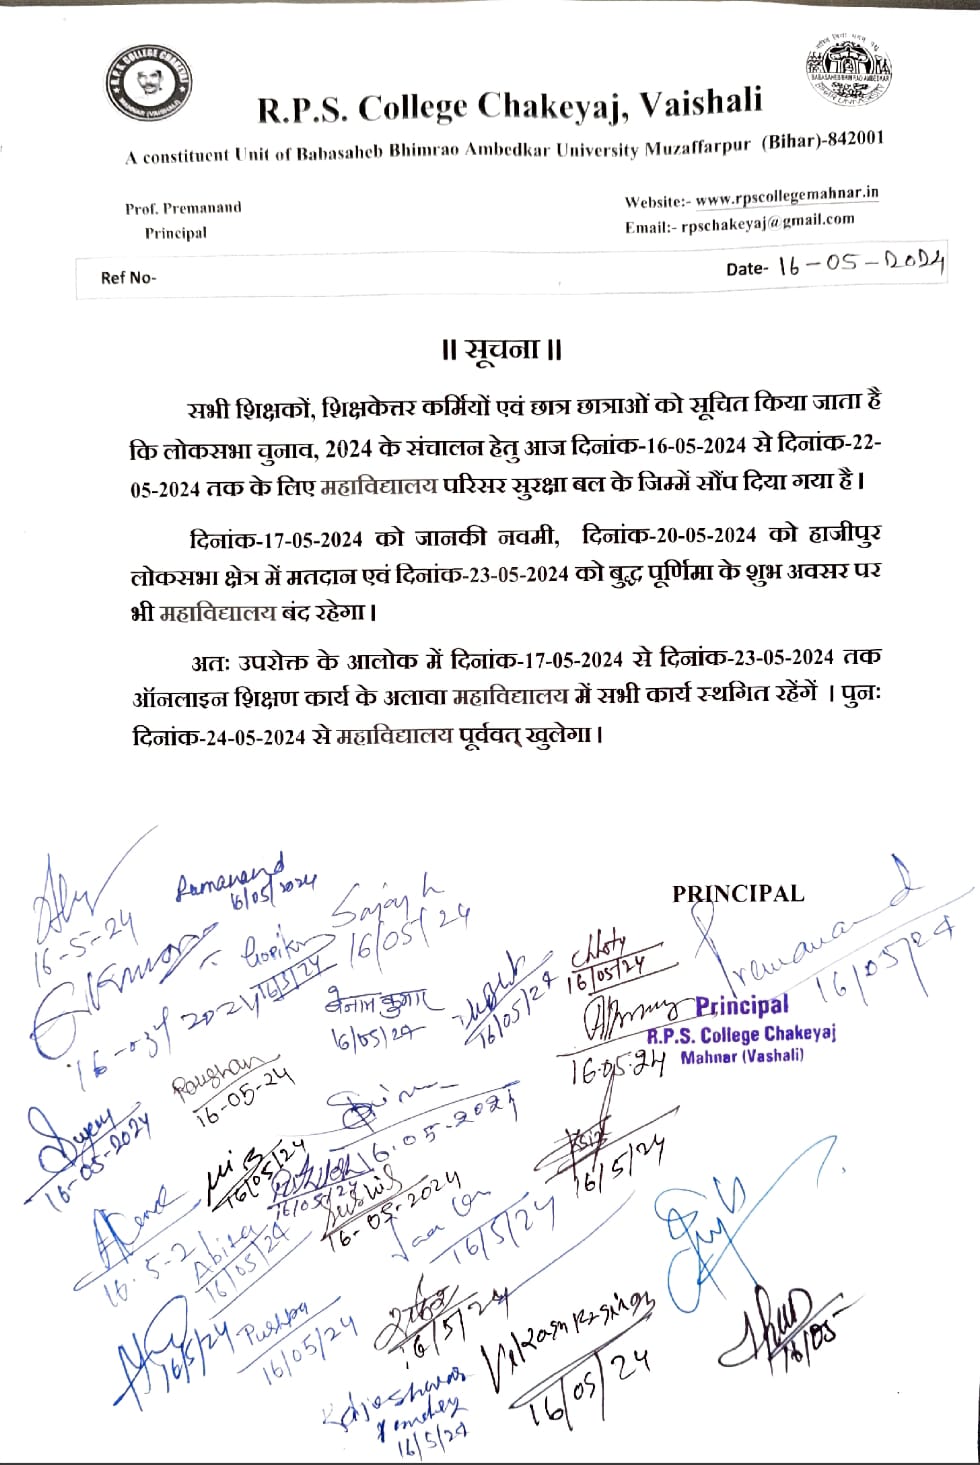 R.P.S. College Chakeyaj, Vaishali
A constituent Unit of Babasaheb Bhimrao Ambedkar University Muzaffarpur (Bihar)-842001
Prof. Premanand
Principal
Website:- www.rpscollegemahnar.in
Email:- rpschakeyaj@gmail.com
Ref No-
Date- 16-05-2024
॥ सूचना ॥
सभी शिक्षकों, शिक्षकेत्तर कर्मियों एवं छात्र छात्राओं को सूचित किया जाता है
कि लोकसभा चुनाव, 2024 के संचालन हेतु आज दिनांक-16-05-2024 से दिनांक-22-
05-2024 तक के लिए महाविद्यालय परिसर सुरक्षा बल के जिम्में सौंप दिया गया है।
दिनांक-17-05-2024 को जानकी नवमी, दिनांक-20-05-2024 को हाजीपुर
लोकसभा क्षेत्र में मतदान एवं दिनांक-23-05-2024 को बुद्ध पूर्णिमा के शुभ अवसर पर
भी महाविद्यालय बंद रहेगा।
अतः उपरोक्त के आलोक में दिनांक-17-05-2024 से दिनांक-23-05-2024 तक
ऑनलाइन शिक्षण कार्य के अलावा महाविद्यालय में सभी कार्य स्थगित रहेंगें । पुनः
दिनांक-24-05-2024 से महाविद्यालय पूर्ववत् खुलेगा।
PRINCIPAL
Premanand
16/05/24
Principal
R.P.S. College Chakeyaj
Mahnar (Vashali)
16-5-24
Ramanand
16/05/2024
16/05/24
Chhoty
16/05/24
16/05/24
16/05/24
16.05.24
Roushan
16-05-24
16-05-2024
16/05/24
16.05.2024
16/5/24
Sushil
16-05-2024
Abita
16/05/24
16/5/24
16/5/24
Pushpa
16/05/24
16/5/24
16/05/24
Rajeshwar
16/5/24
16/05